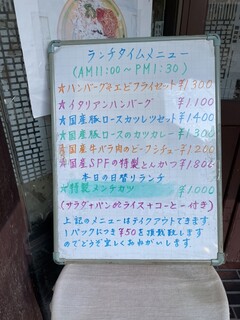 ランチタイムメニュー
(AM11:00～PM1:30)
☆ハンバーグ+エビフライセット ¥1300
☆イタリアンハンバーグ ¥1,100
☆国産豚ロースカツレツセット ¥1400
☆国産豚ロースのカツカレー ¥1,300
☆国産牛バラ肉のビーフシチュー ¥1200
☆国産SPFの特製とんかつ ¥1,800
本日の日替りランチ
☆特製メンチカツ ¥1,000
(サラダ+パンorライス+コーヒー付き)
上記のメニューはテイクアウトできます。
1パックにつき¥50を頂戴致します
のでどうぞ宜しくおねがいします。